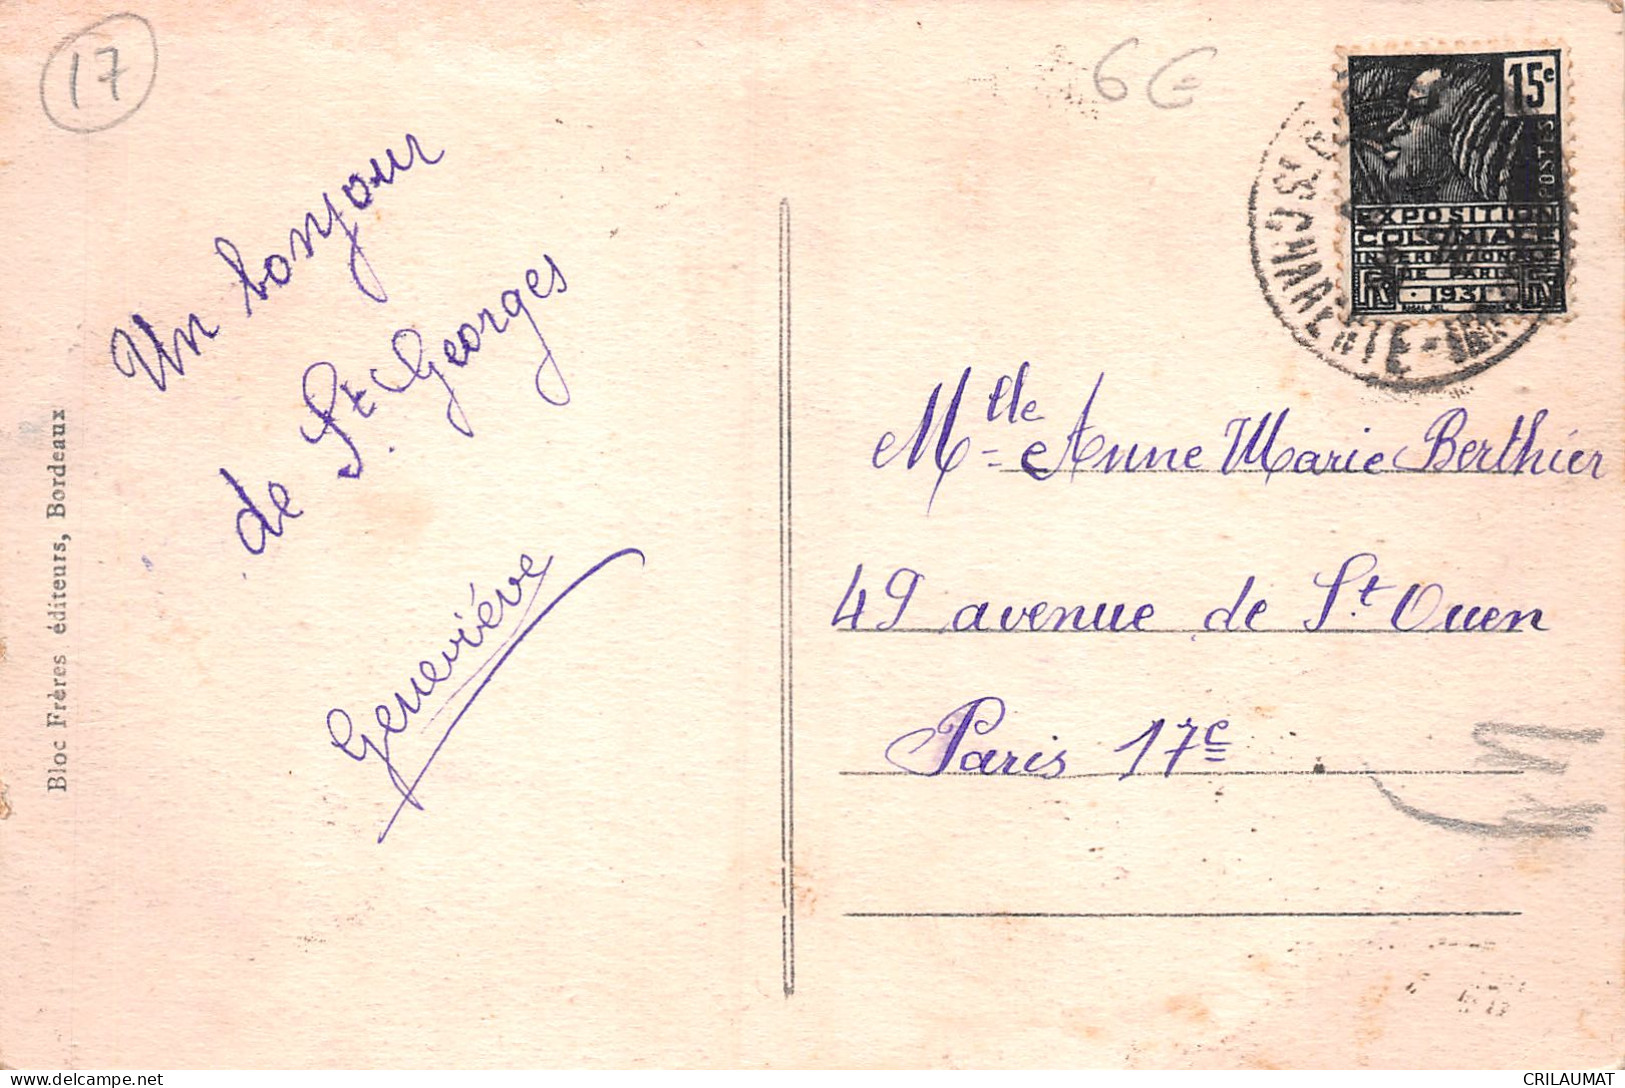 17
6 €
15c
POSTES
EXPOSITION
COLONIALE
INTERNATIONALE
DE PARIS
1931
CHARENTE-INFRE
Un bonjour
de St Georges
Geneviève
Mlle Anne Marie Berthier
49 avenue de St Ouen
Paris 17e
Bloc Frères éditeurs, Bordeaux
CRILAUMAT